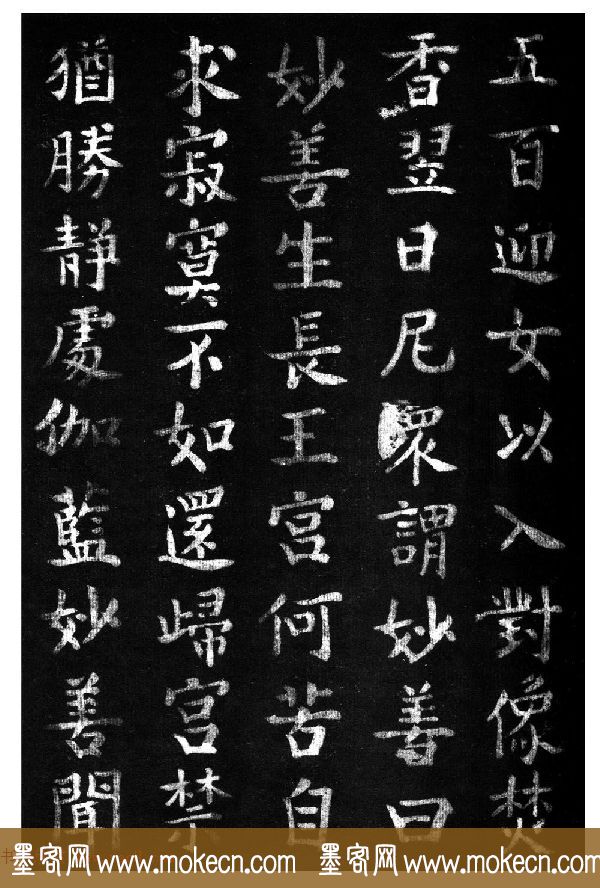 五百迎女以入對像焚
香翌日尼眾謂妙善曰
妙善生長王宮何苦自
求寂寞不如還歸宮禁
猶勝静處伽藍妙善聞
墨客网 www.mokecn.com 墨客网 www.mokecn.com